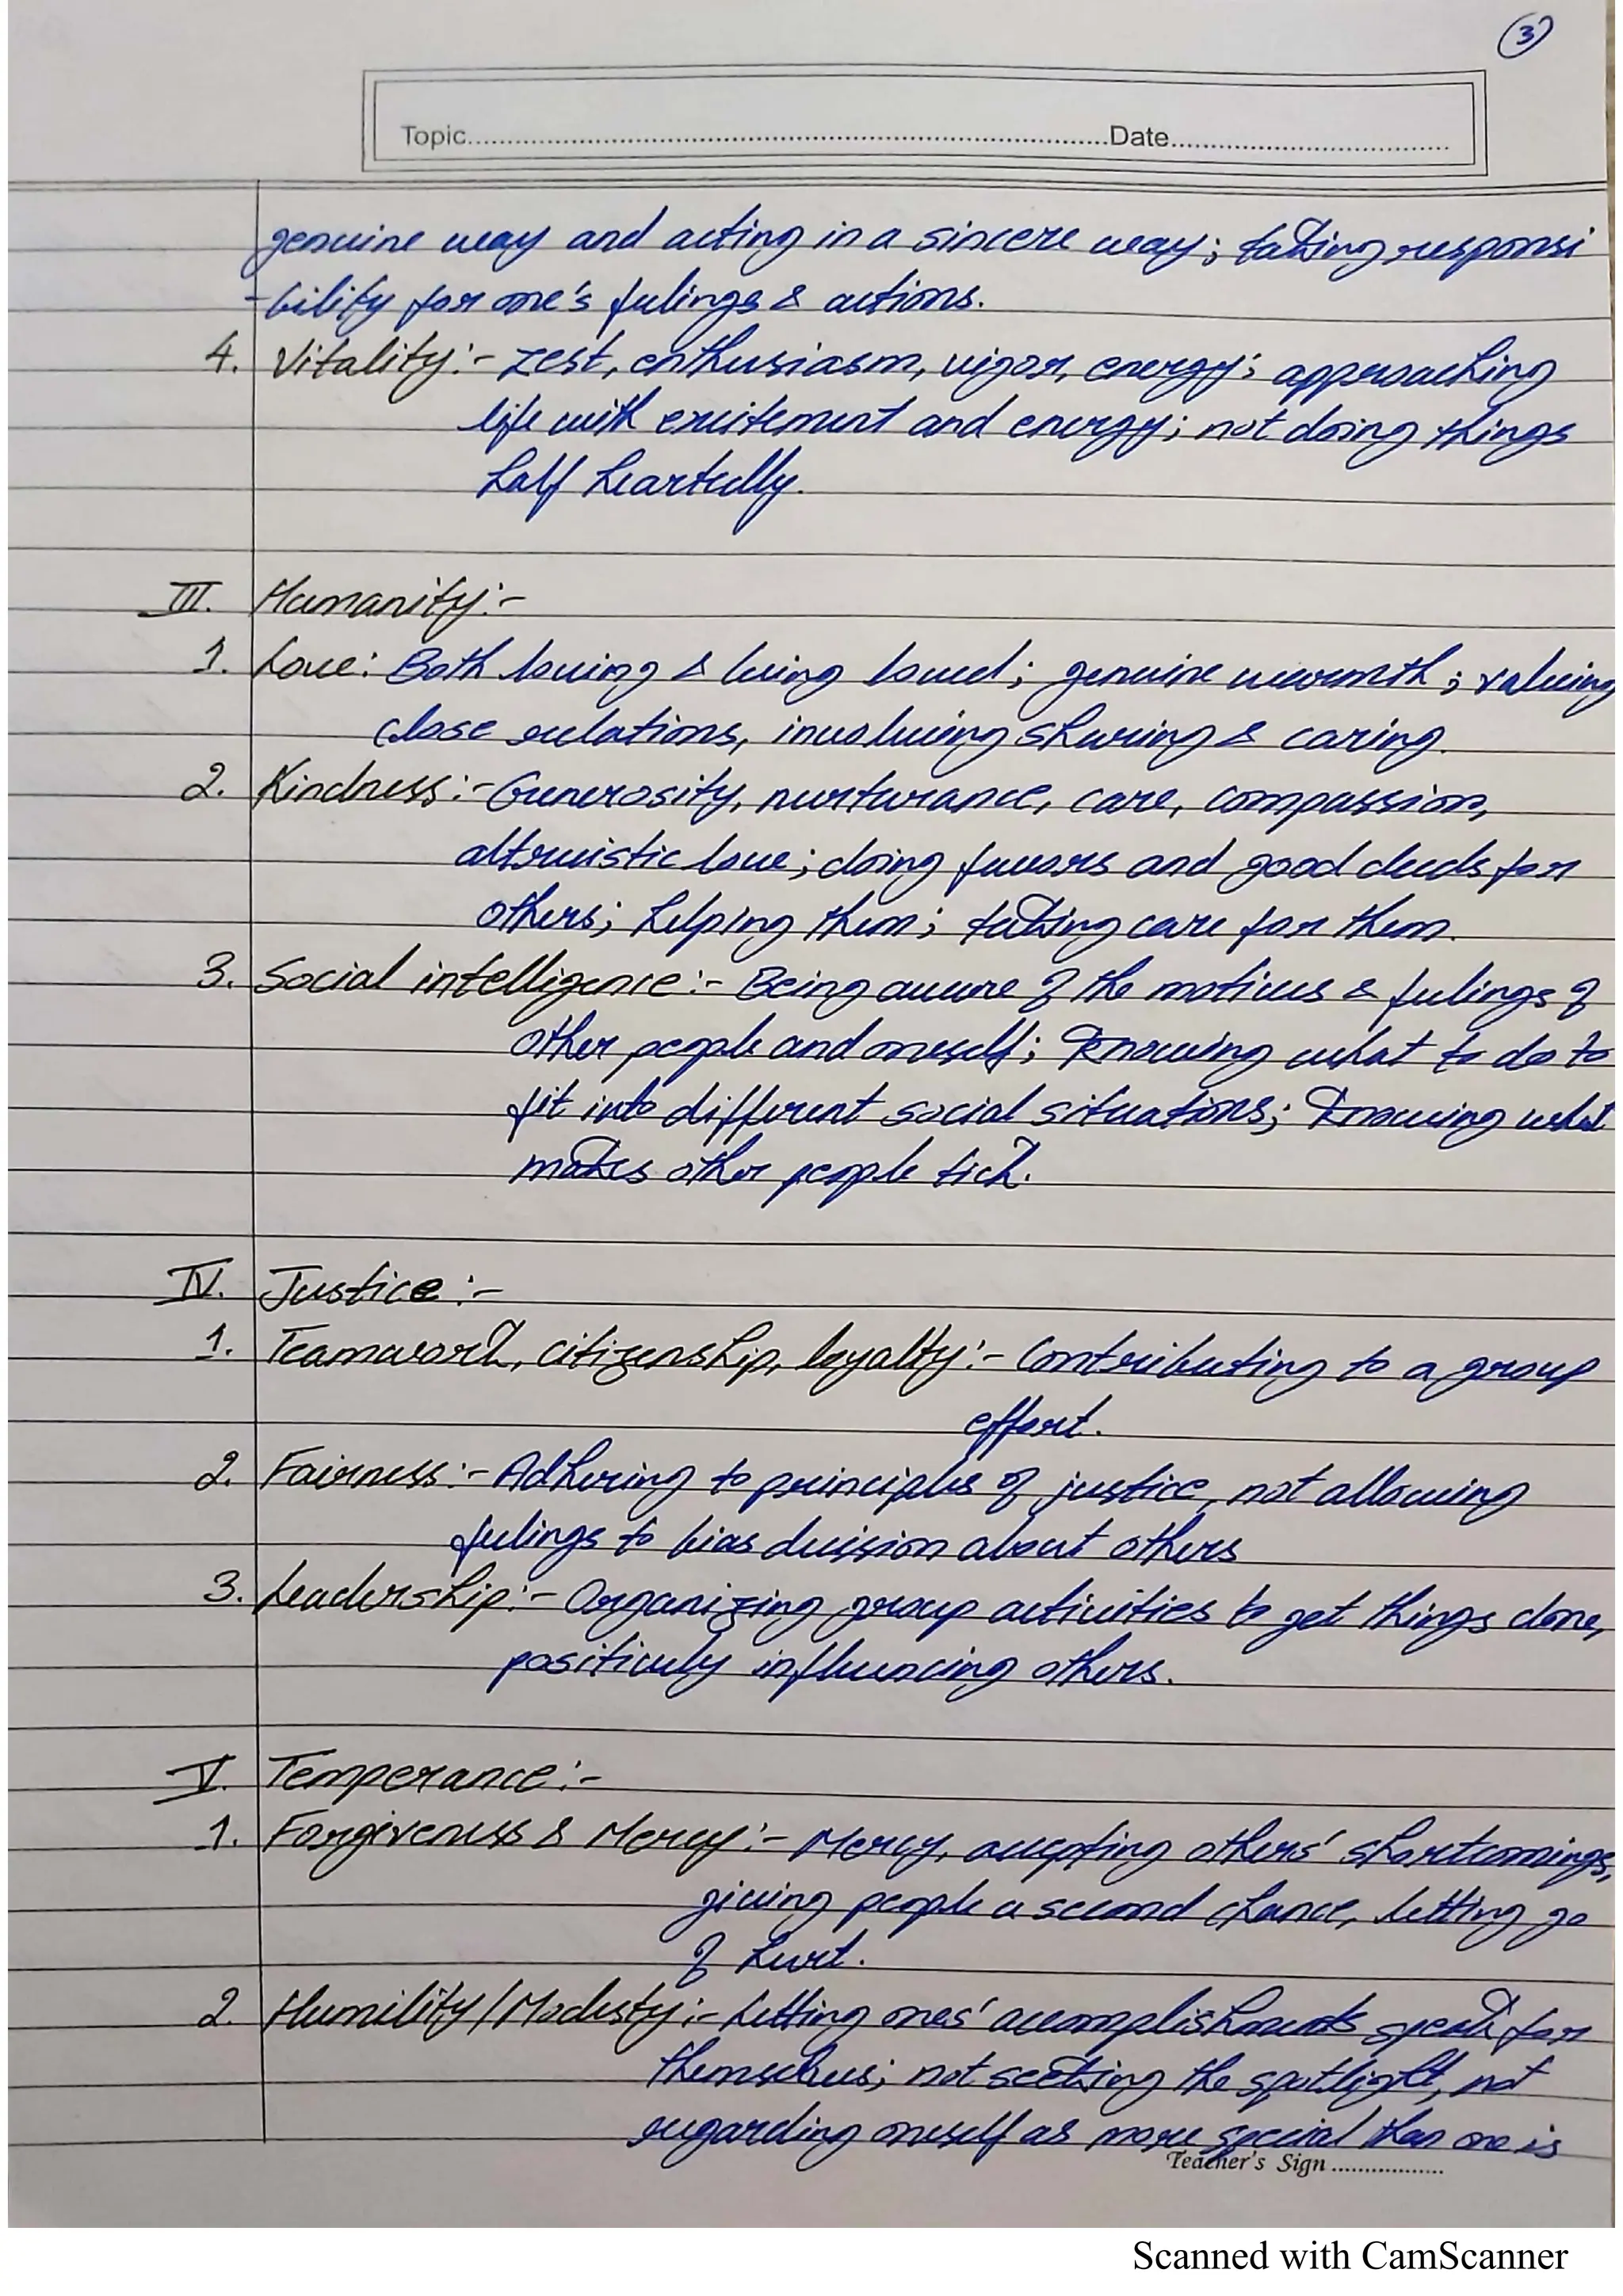 3
Topic.....Date.....
genuine way and acting in a sincere way; taking responsi
-bility for one's feelings & actions.
4. Vitality:- zest, enthusiasm, vigor, energy; approaching
life with excitement and energy; not doing things
half heartedly.
III. Humanity:-
1. Love: Both loving & being loved; genuine warmth; valuing
close relations, involving sharing & caring.
2. Kindness:- Generosity, nurturance, care, compassion,
altruistic love; doing favors and good deeds for
others; helping them; taking care for them.
3. Social intelligence:- Being aware of the motives & feelings of
other people and oneself; knowing what to do to
fit into different social situations; knowing what
makes other people tick.
IV. Justice:-
1. Teamwork, citizenship, loyalty:- Contributing to a group
effort.
2. Fairness:- Adhering to principles of justice, not allowing
feelings to bias decision about others
3. Leadership:- Organizing group activities to get things done,
positively influencing others.
V. Temperance:-
1. Forgiveness & Mercy:- Mercy, accepting others' shortcomings,
giving people a second chance, letting go
of hurt.
2. Humility/Modesty:- Letting ones' accomplishments speak for
themselves; not seeking the spotlight, not
regarding oneself as more special than one is
Teacher's Sign..................
Scanned with CamScanner